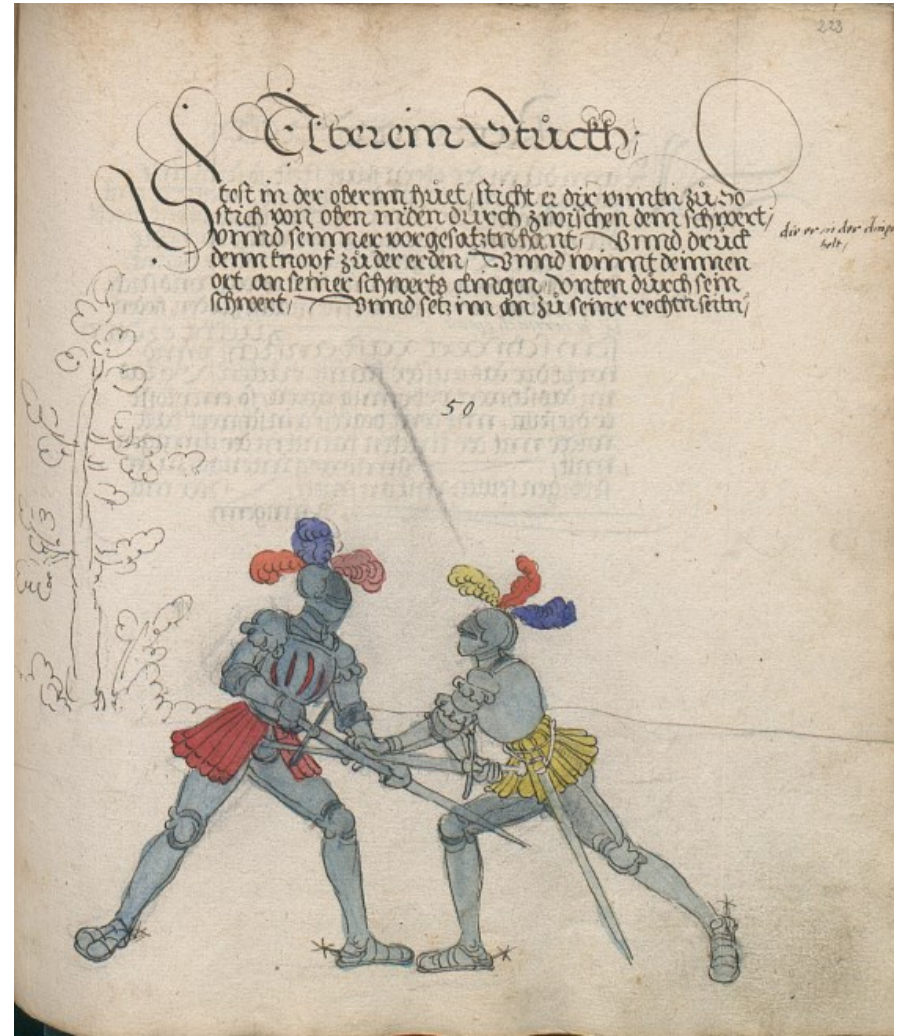 223
Aber ein Stuckh;
Stest in der obernn huet, sticht er dir vnntn zů So
stich von oben niden durch zwischen dem schwert,
Vnnd seinner vorgesatztn hant, Vnnd druck
denn knopf zů der erden, Vnnd winnt deinnen
ort an seiner schwerts clingen, vnten durch sein
schwert, Vnnd setz im an zů seinr rechtn seitn,
die er in der
helt,
50